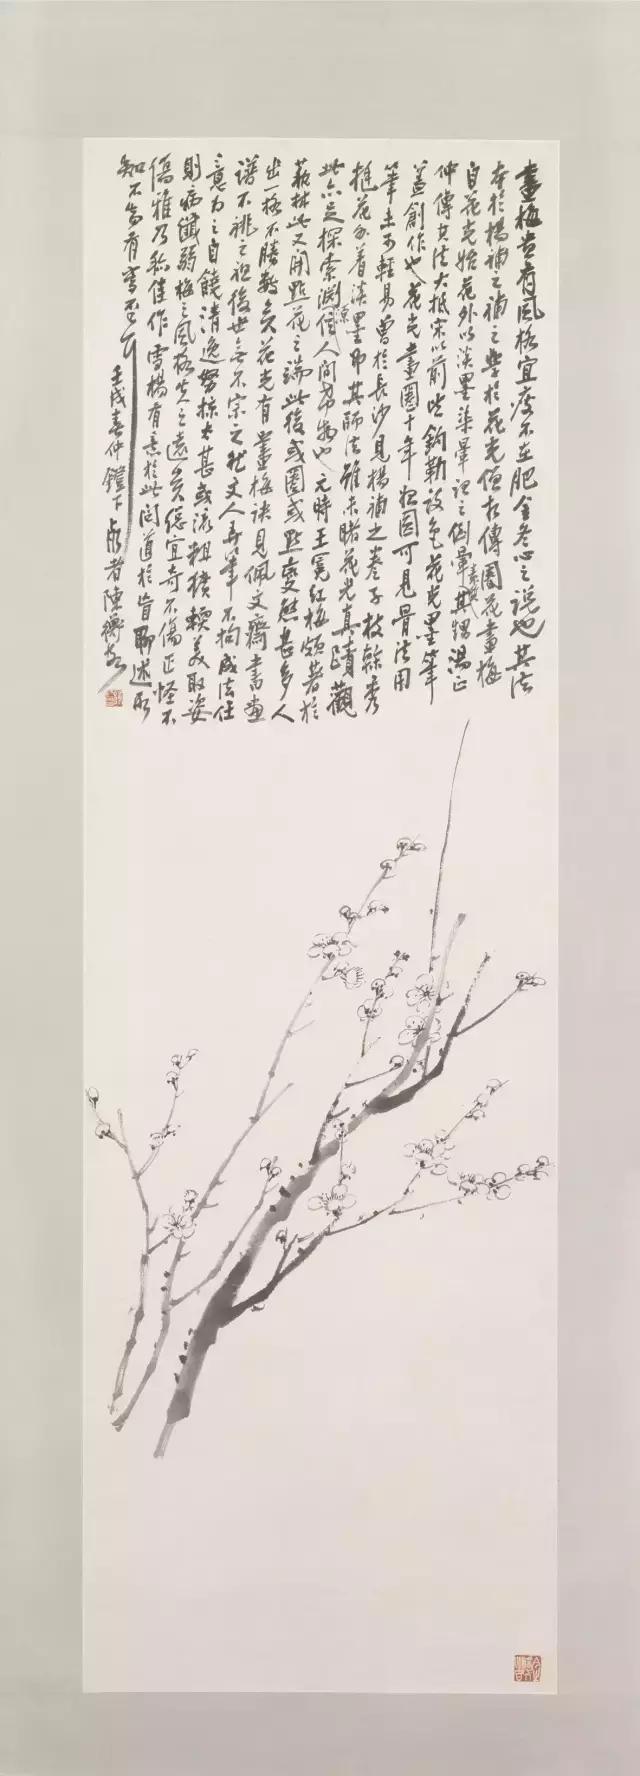 畫梅貴有風格宜瘦不在肥金冬心之説也其法
本於楊補之補之學於花光値在傳圈花畫梅
自花光始花外以淡墨染暈謂之倒暈其甥湯正
仲傳其法大抵宋以前皆鈎勒設色花光墨筆
蓋創作也花光畫圈十年視圈可見骨法用
筆未可輕易曾於長沙見楊補之卷子枝榦秀
挺花外著淡墨即其師法雖未睹花光真蹟觀
此亦足探索淵源個人間希物也元時王冕紅梅頗著於
藝林此又開點花之端此後或圈或點變態甚多人
出一格不勝數矣花光有畫梅訣見佩文齋書畫
譜不祧之祖後世無不宗之然文人弄筆不拘成法任
意為之自饒清逸努掠太甚或流粗獷輭美取姿
則病纖弱梅之風格失之遠矣總宜奇不傷正怪不
傷雅乃稱佳作雪楊有意於此問道於盲聊述所
知不為有當否耳
壬戌春仲 下 者陳衡恪